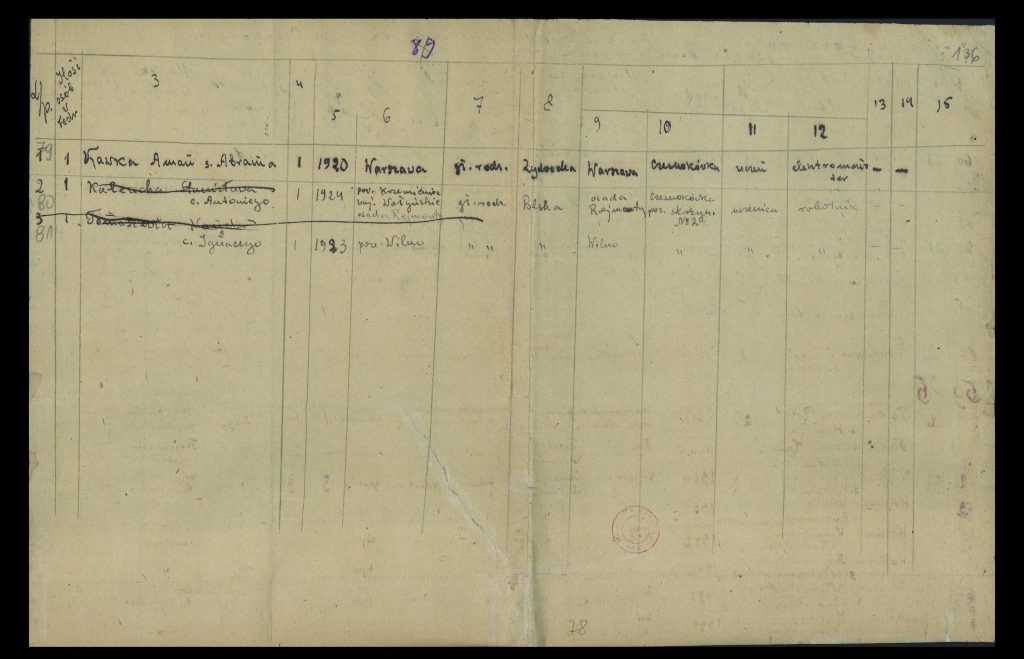 89
136
L/p. Ilość osób w rodz. 3 4 5 6 7 8 9 10 11 12 13 14 15
79
1 1 Kawka s. Abrama 1 1920 Warszawa gł. rodz. Żydowska Warszawa Czesnokówka uczeń elektromon-
ter — —
2 1 Kalencka
80 c. Antoniego 1 1924 pow. Krzemieniec
woj. Wołyńskie
osada Rejmonty gł. rodz. Polska osada
Rejmonty Czesnokówka
poz. skrzyn.
№ 20 uczenica robotnik — —
3 1. Tomaszewicz
81 c. Ignacego 1 1923 pow. Wilno " " " Wilno " " " — —
78